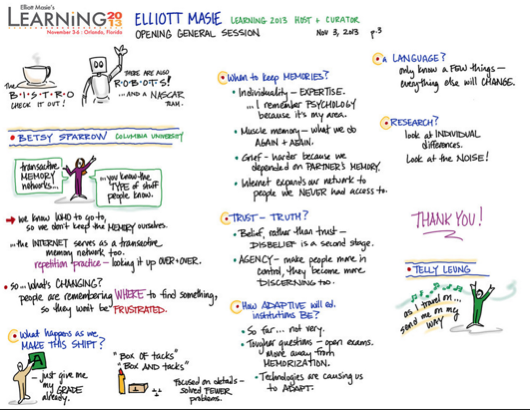 Elliott Masie's
LEARNING 2013
November 3-6 : Orlando, Florida
ELLIOTT MASIE LEARNING 2013 HOST + CURATOR
OPENING GENERAL SESSION Nov 3, 2013 p.3
The
B•I•S•T•R•O
CHECK IT OUT!
THERE ARE ALSO
R•O•B•O•T•S!
...AND A NASCAR
TEAM.
• BETSY SPARROW COLUMBIA UNIVERSITY
transactive
MEMORY
networks...
...you know the
TYPE of stuff
people know.
→ we know WHO to go to,
so we don't keep the MEMORY ourselves.
...the INTERNET serves as a transactive
memory network too.
repetition + practice — looking it up OVER + OVER.
• SO... WHAT'S CHANGING?
people are remembering WHERE to find something,
so they won't be FRUSTRATED.
What happens as we
MAKE THIS SHIFT?
A
— just give me
my GRADE
already.
"BOX OF tacks"
"BOX AND tacks"
Focused on details —
solved FEWER
problems.
When to keep MEMORIES?
• Individuality — EXPERTISE.
...I remember PSYCHOLOGY
because it's my area.
• Muscle memory — what we do
AGAIN + AGAIN.
• Grief — harder because we
depended on PARTNER'S MEMORY.
• Internet expands our network to
people we NEVER had access to.
TRUST — TRUTH?
• Belief, rather than trust —
DISBELIEF is a second stage.
• AGENCY — make people more in
control, they become more
DISCERNING too.
How ADAPTIVE will ed.
institutions BE?
• So far... not very.
• Tougher questions — open exams.
Move away from
MEMORIZATION.
• Technologies are causing us
to ADAPT.
A LANGUAGE?
only know a FEW things —
everything else will CHANGE.
RESEARCH?
look at INDIVIDUAL
differences.
Look at the NOISE!
THANK YOU!
• TELLY LEUNG
as I travel on...
send me on my
WAY